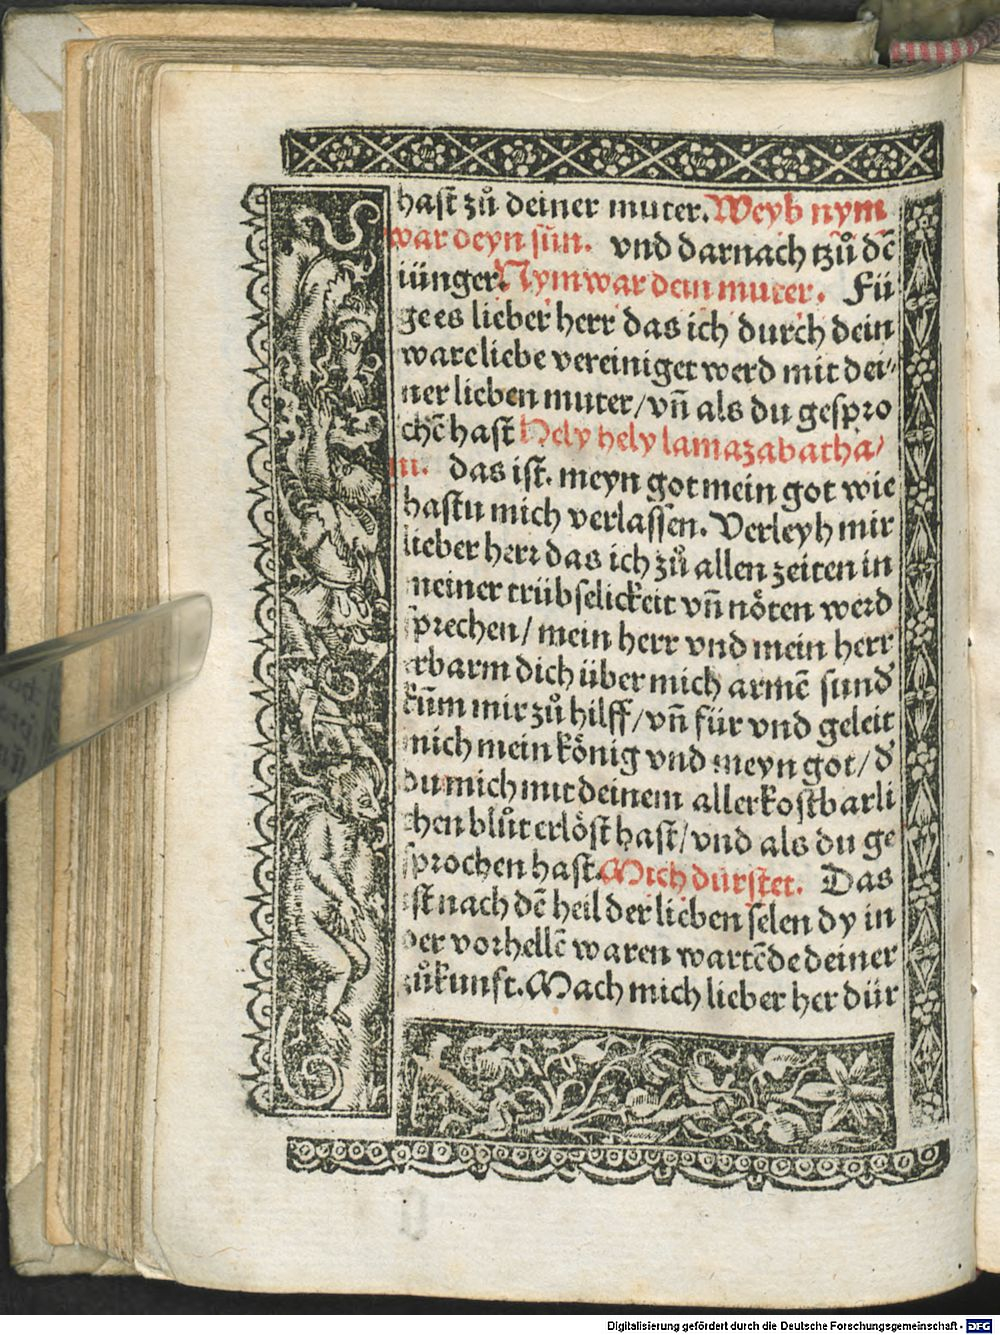 hast zů deiner muter. Weyb nym
war deyn sün. vnd darnach tzů dē
iünger. Nym war dein muter. Fü
ge es lieber herr das ich durch dein
ware liebe vereiniget werd mit dei⸗
ner lieben muter/vñ als du gespro
chē hast Hely hely lamazabatha/
ni. das ist. meyn got mein got wie
hastu mich verlassen. Verleyh mir
lieber herr das ich zů allen zeiten in
meiner trübselickeit vñ nöten werd
sprechen/ mein herr vnd mein herr
erbarm dich über mich armē sund̛
kūm mir zů hilff/vñ für vnd geleit
mich mein könig vnd meyn got/ d̛
du mich mit deinem allerkostbarli
chen blůt erlöst hast/vnd als du ge
sprochen hast. Mich dürstet. Das
ist nach dē heil der lieben selen dy in
der vorhellē waren wartēde deiner
zůkunft. Mach mich lieber her dür
Digitalisierung gefördert durch die Deutsche Forschungsgemeinschaft - DFG